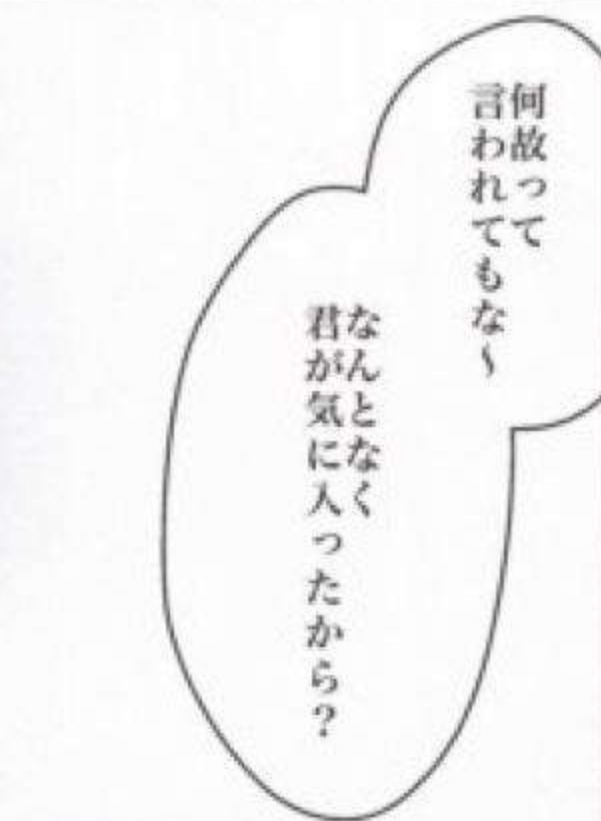 何故って
言われてもな〜
なんとなく
君が気に入ったから？